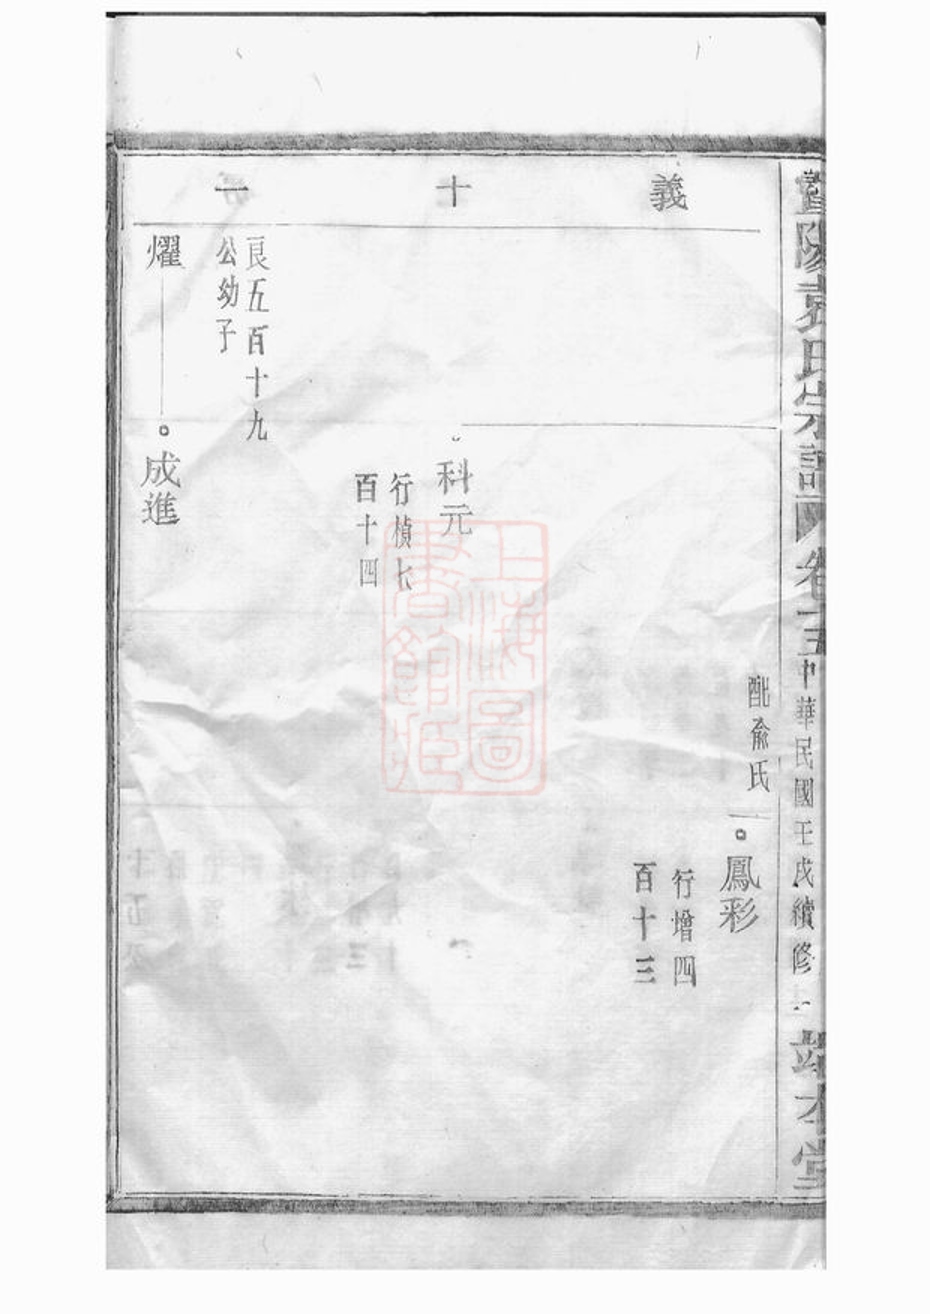 暨陽袁氏宗譜 卷十五 中華民國壬戌續修 端本堂
義十一
配俞氏
鳳彩
行增四
百十三
科元
行楨七
百十四
良五百十九
公幼子
燿
成進
上海圖
書館藏